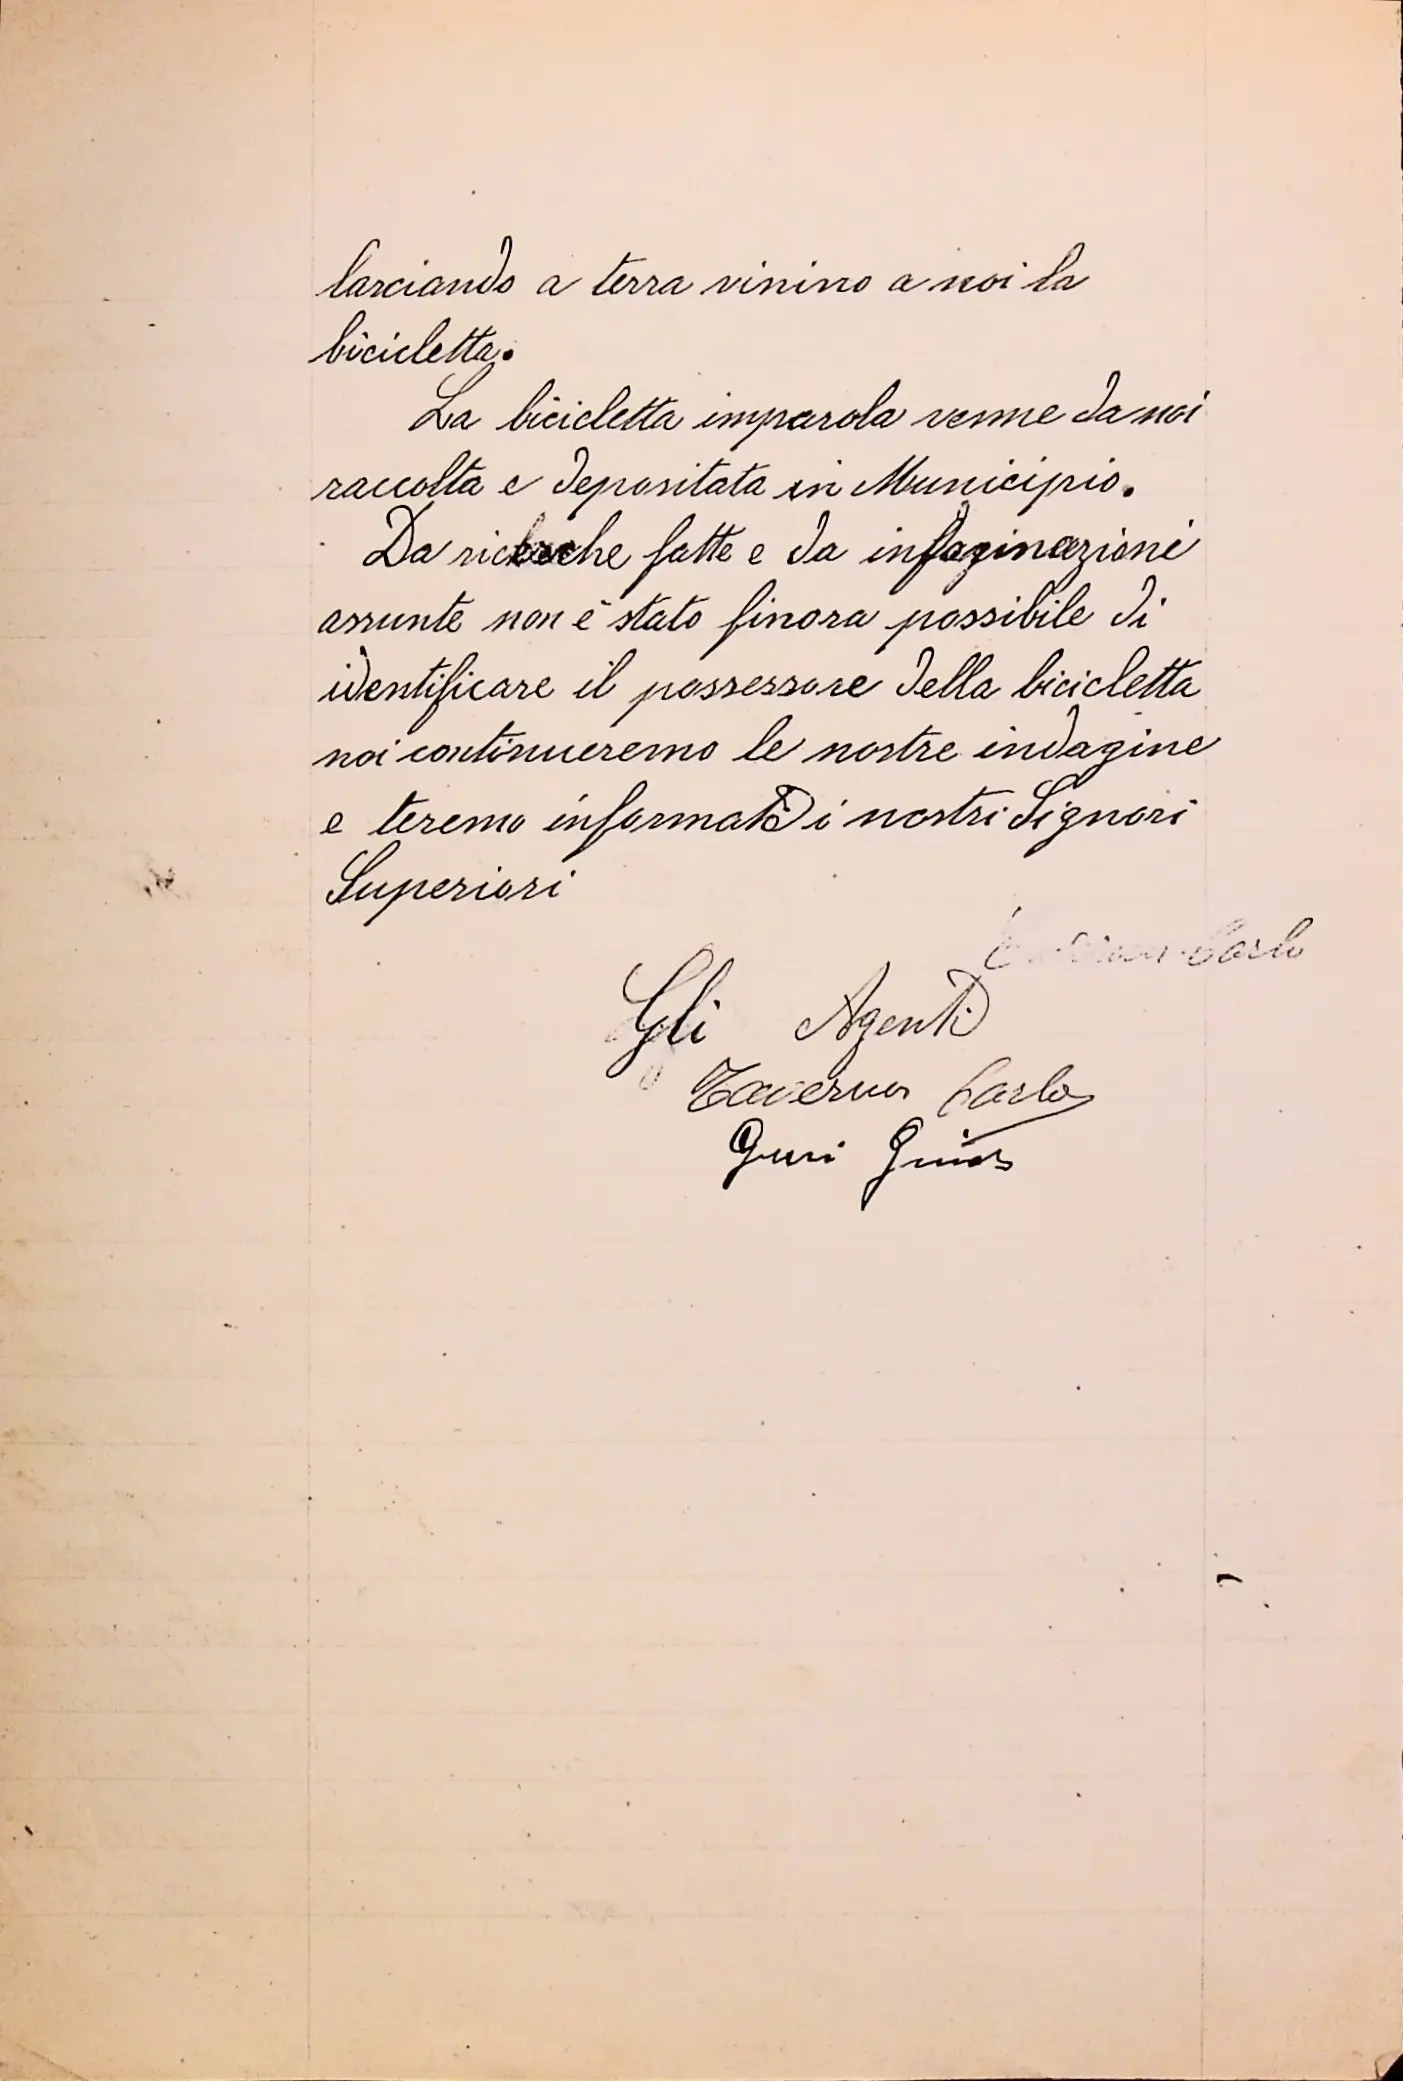 lasciando a terra vinino a noi la
bicicletta.
La bicicletta imparola venne da noi
raccolta e depositata in Municipio.
Da ricerche fatte e da infaginazioni
assunte non è stato finora possibile di
identificare il possessore della bicicletta
noi continueremo le nostre indagine
e teremo informati i nostri Signori
Superiori
Carlo
Gli Agenti
Taverna Carlo